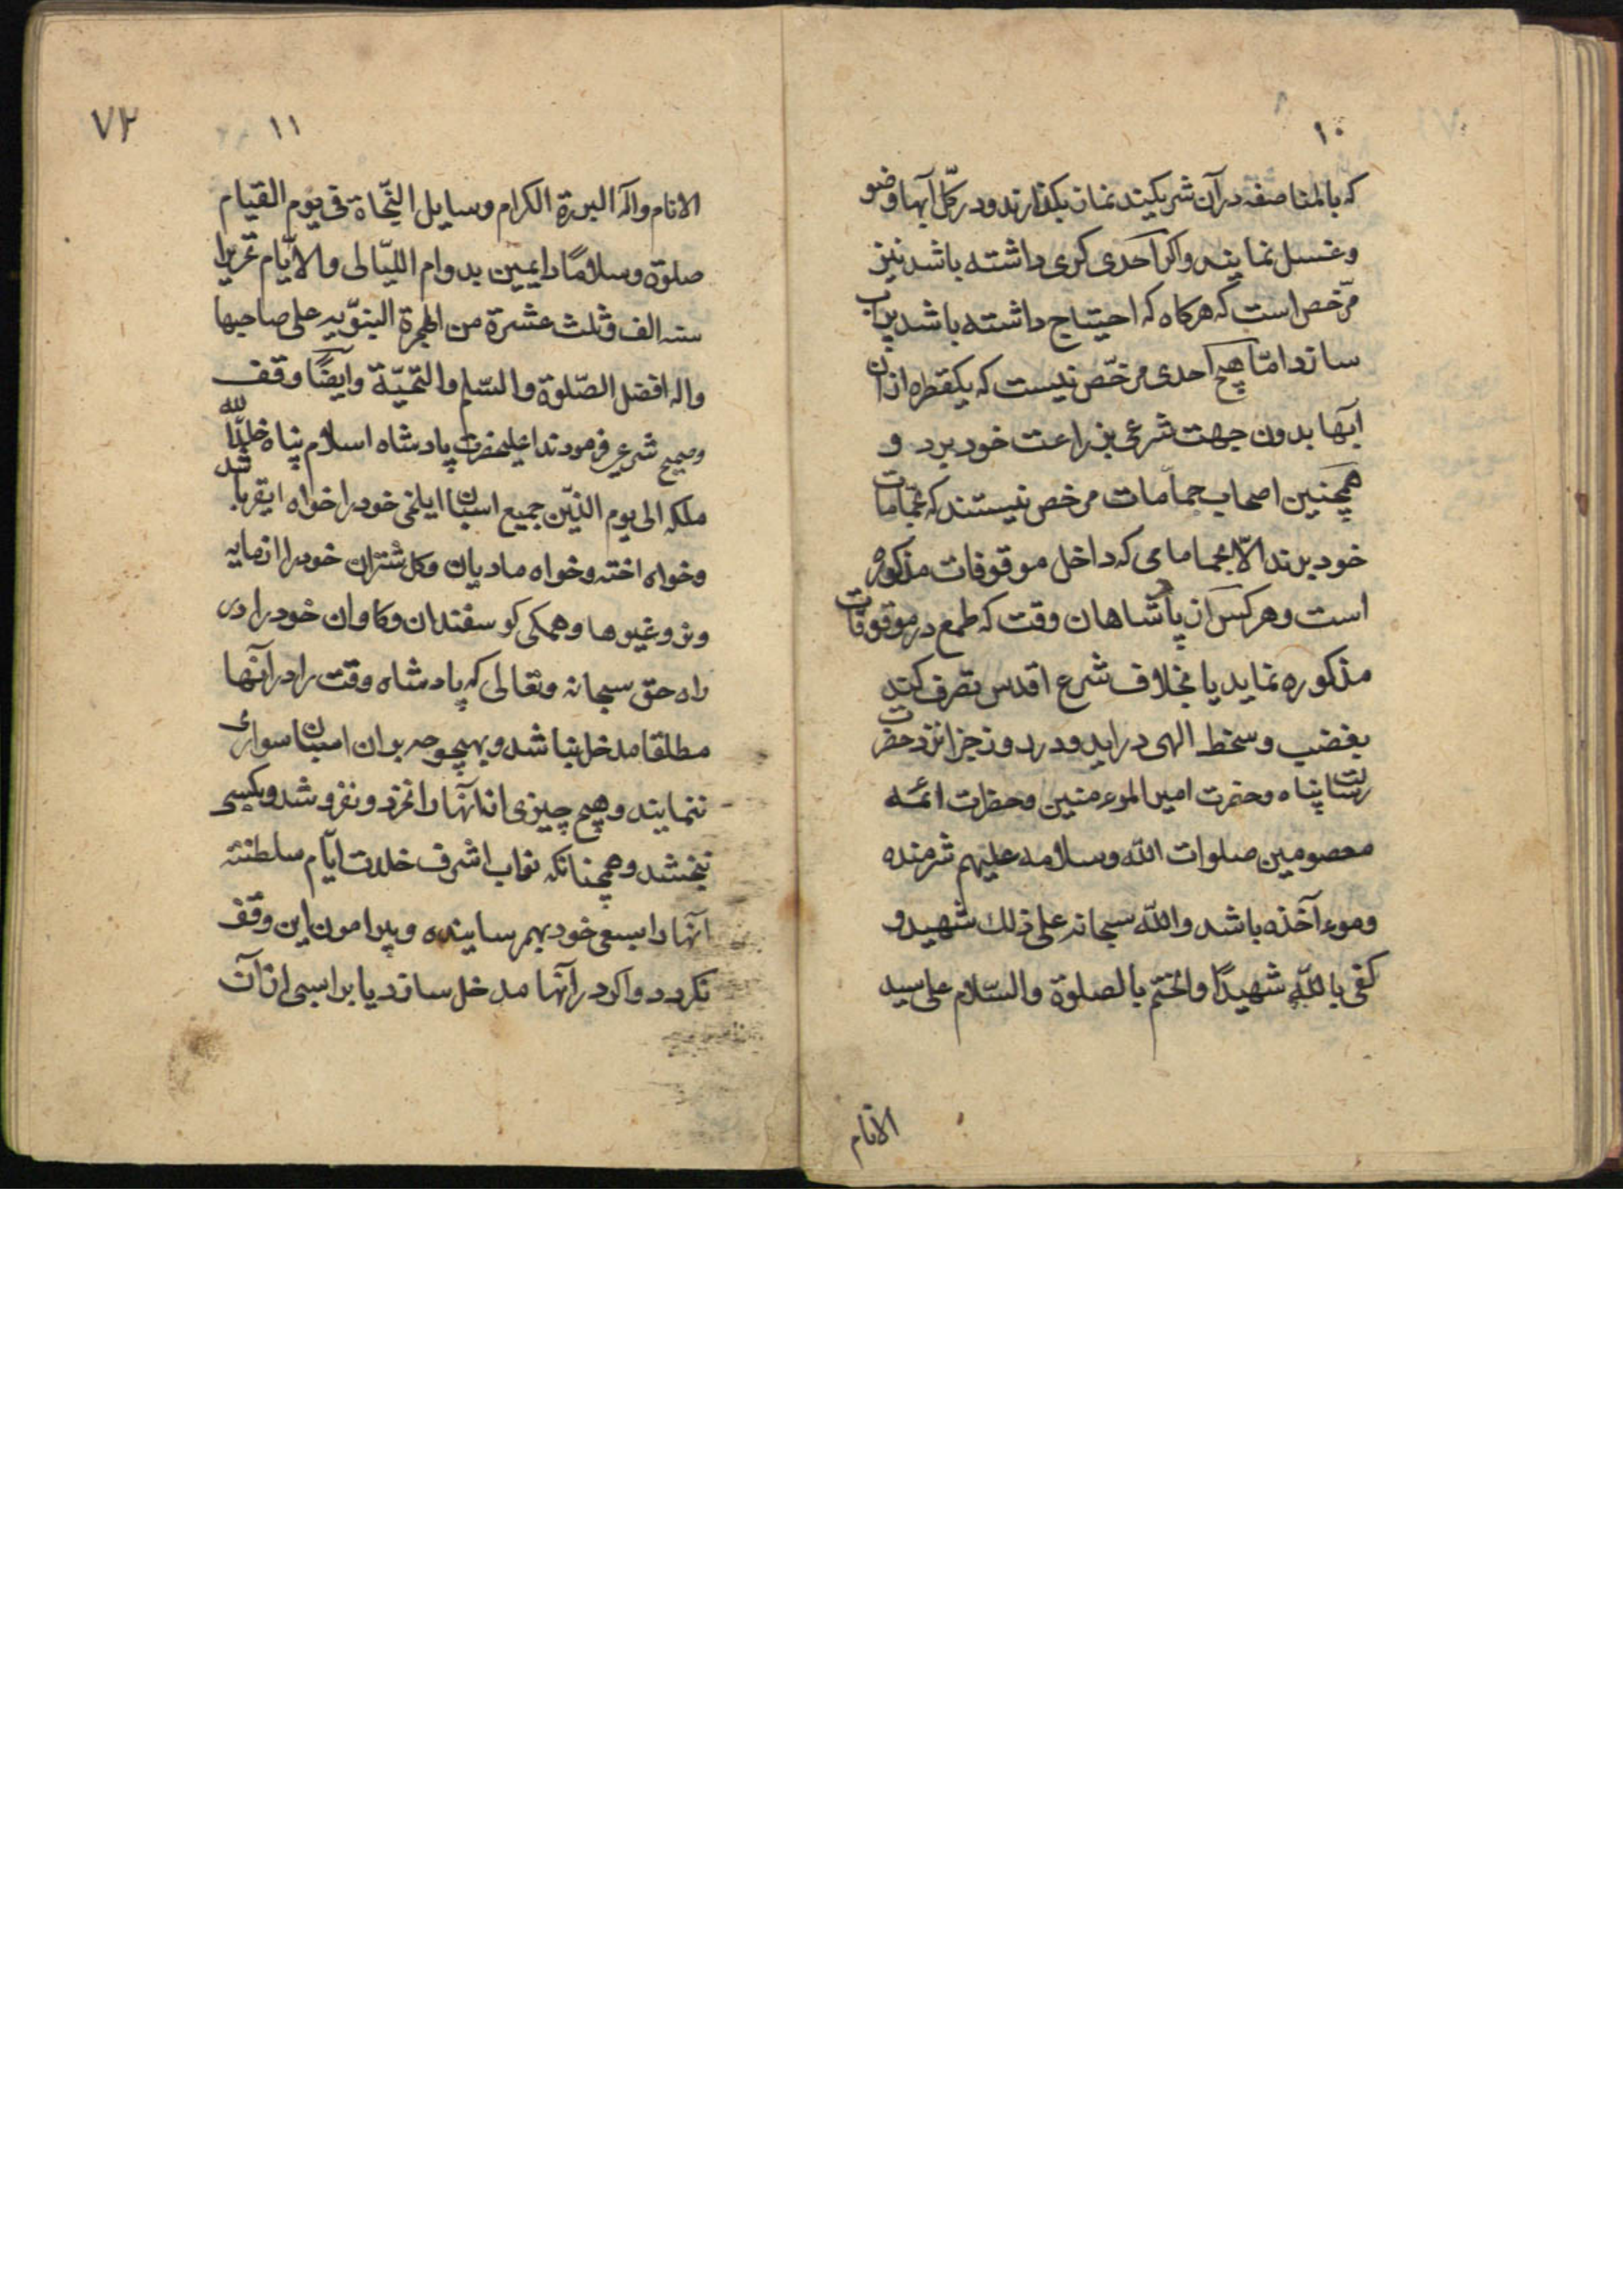 ١٠
که بالمناصفه در آن شریکیند نماز بکذارند و در کلّ آبها وضو
و غسل نمایند و اکر احدی کری داشته باشد نیز
مرّخص است که هرکاه که احتیاج داشته باشد پرآب
سازد امّا هیچ احدی مرخّص نیست که یکقطره از آن
آبها بدون جهت شرعی بزراعت خود برد و
همچنین اصحاب حمامات مرخص نیستند که بحمّامات
خود برند الّا بحمامامی که داخل موقوفات مذکوره
است و هر کس از پادشاهان وقت که طمع در موقوفات
مذکوره نماید یا بخلاف شرع اقدس تصرف کند
بغضب و سخط الهی دراید و در روز جزا نزد حضرت
رسالت پناه و حضرت امیر المومنین و حضرات ائمه
معصومین صلوات الله و سلامه علیهم شرمنده
و موءآخذه باشد والله سبحانه علی ذلك شهید و
کفی بالله شهیدًا و اختم بالصلوة والسّلام علی سید
الانام
٧٢
١١
الانام وآله البررة الکرام وسایل النّجاة فی یوم القیام
صلوة وسلامًا دایمین بدوام اللیّالی والایّام تحریرا
سنه الف وثلث عشرة من الهجرة النبوّیه علی صاحبها
واله افضل الصّلوة والسّلم والتحیّة وایضًا وقف
وصحیح شرعی فرمودند اعلیحضرت پادشاه اسلام پناه خلّد الله
ملکه الی یوم الدّین جمیع اسبان ایلخی خود را خواه ایقر باشد
وخواه اخته وخواه مادیان وکل شتران خود را از مایه
ونر وغیرها وهمکی کوسفندان وکاوان خود را در
راه حق سبحانه وتعالی که پادشاه وقت را در آنها
مطلقا مدخل نباشد وبهیچوجه بر ان اسبان سواری
ننمایند وهیچ چیزی از آنها را نخرد ونفروشد وبکسی
نبخشد وهمچنانکه نواب اشرف خلدت ایام سلطنته
آنها را بسعی خود بهم رسانیده وپیرامون این وقف
نکردد واکر در آنها مدخل سازد یا بر اسبی از آن